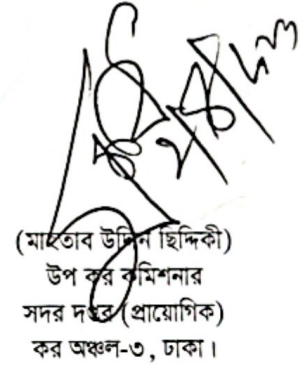 (মাহতাব উদ্দিন ছিদ্দিকী)
উপ কর কমিশনার
সদর দপ্তর (প্রায়োগিক)
কর অঞ্চল-৩, ঢাকা।